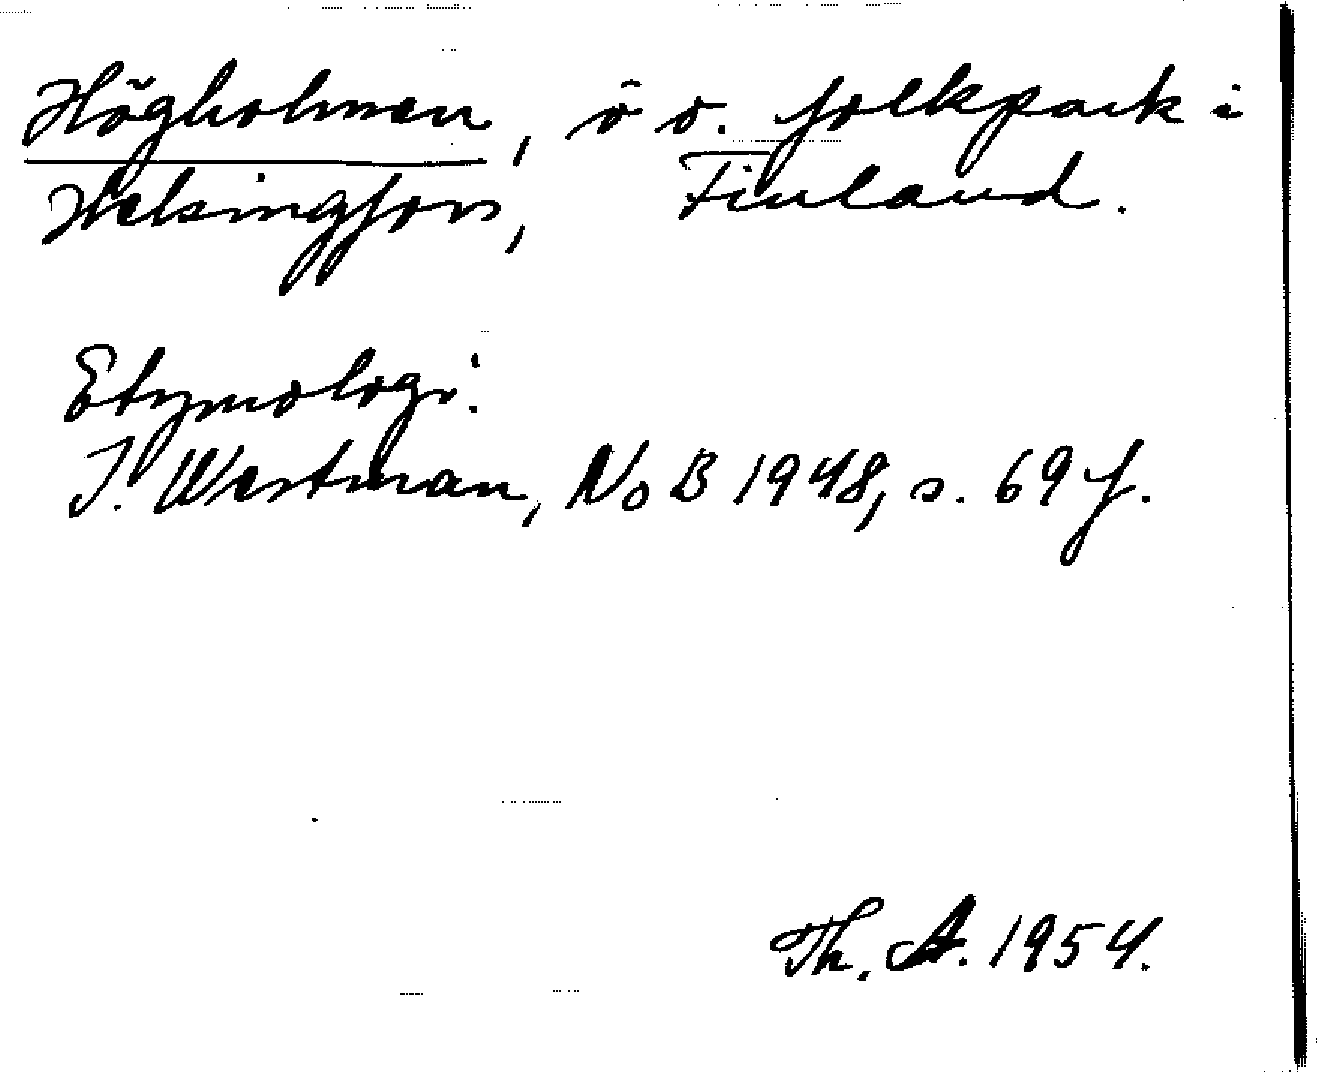 Högholmen, ö o. folkpark i
Helsingfors, Finland.
Etymologi:
I. Westman, NoB 1948, s. 69 f.
Th. A. 1954.